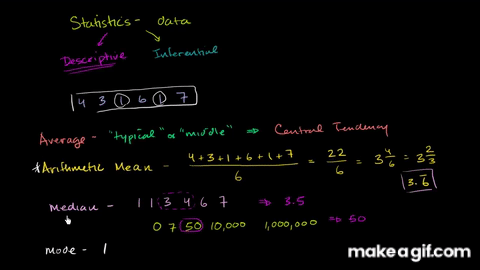 Statistics - data
Descriptive Inferential
4 3 1 6 1 7
Average - "typical" or "middle" ⇒ Central Tendency
*Arithmetic Mean - (4+3+1+6+1+7)/6 = 22/6 = 3 4/6 = 3 2/3
3.6̅
Median - 1 1 3 4 6 7 ⇒ 3.5
0 7 50 10,000 1,000,000 ⇒ 50
mode - 1
makeagif.com